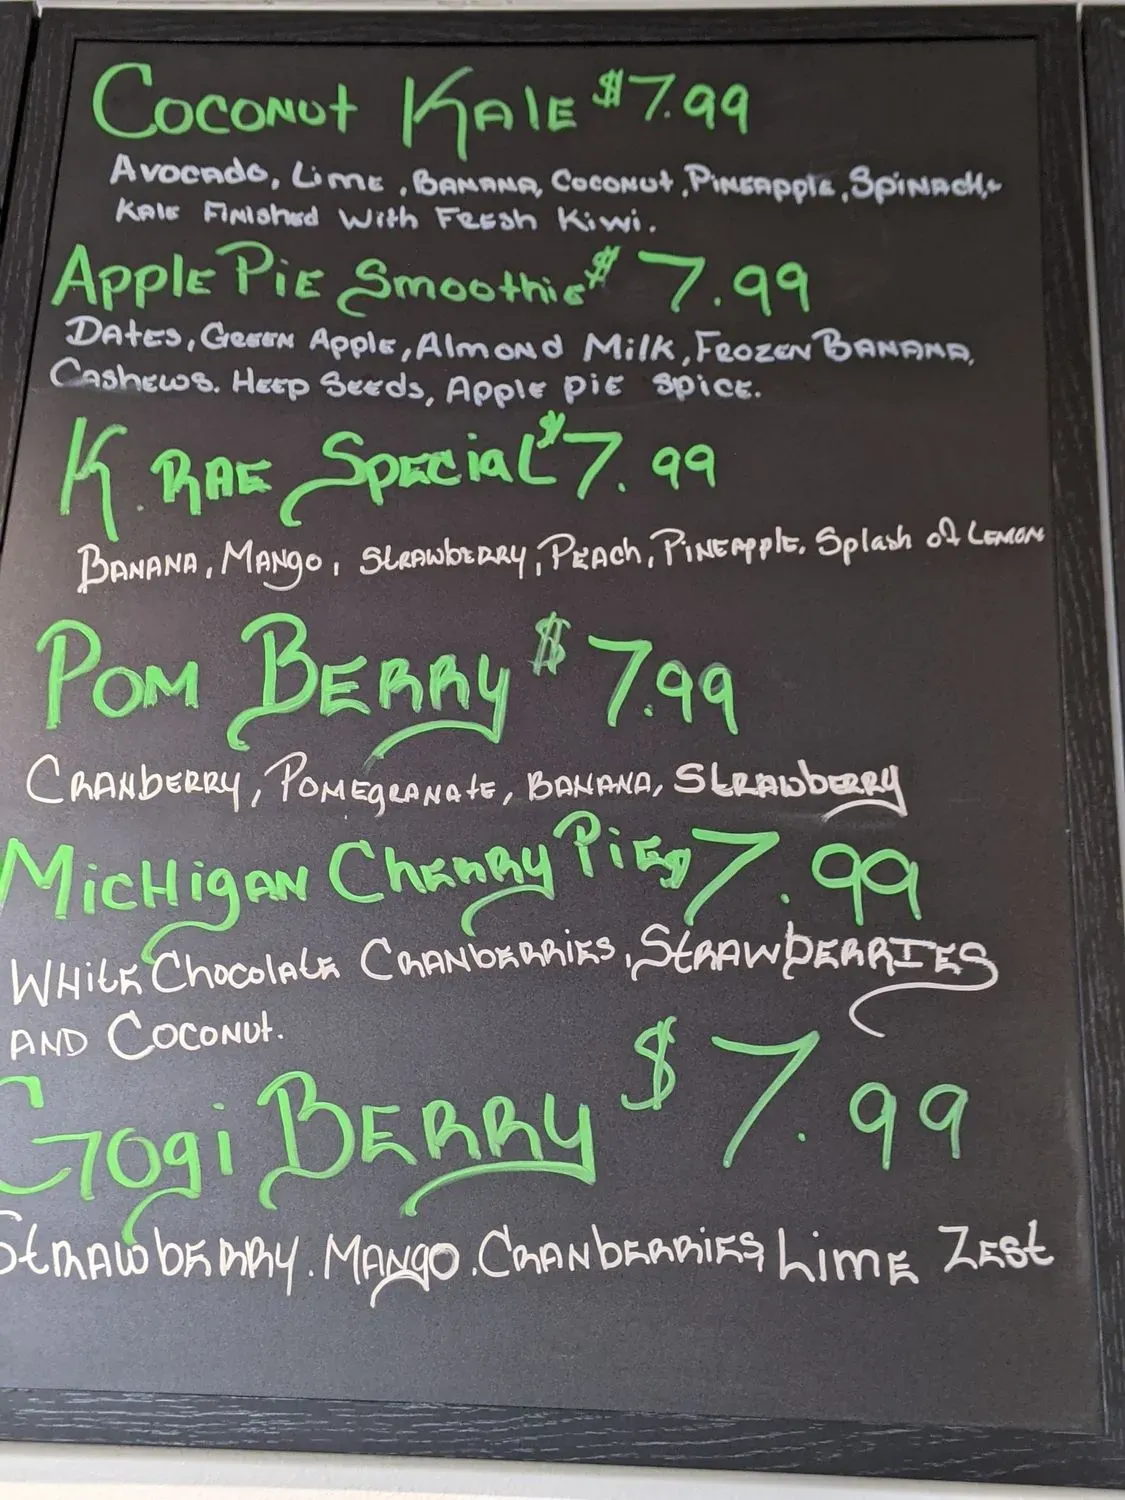 Coconut Kale $7.99
Avocado, Lime, Banana, Coconut, Pineapple, Spinach,+
Kale Finished With Fresh Kiwi.
Apple Pie Smoothie $7.99
Dates, Green Apple, Almond Milk, Frozen Banana,
Cashews. Heep Seeds, Apple pie spice.
K. Rae Special $7.99
Banana, Mango, Strawberry, Peach, Pineapple. Splash of Lemon
Pom Berry $7.99
Cranberry, Pomegranate, Banana, Strawberry
Michigan Cherry Pie 7.99
White Chocolate Cranberries, Strawberries
and Coconut.
Gogi Berry $7.99
Strawberry. Mango. Cranberries, Lime Zest